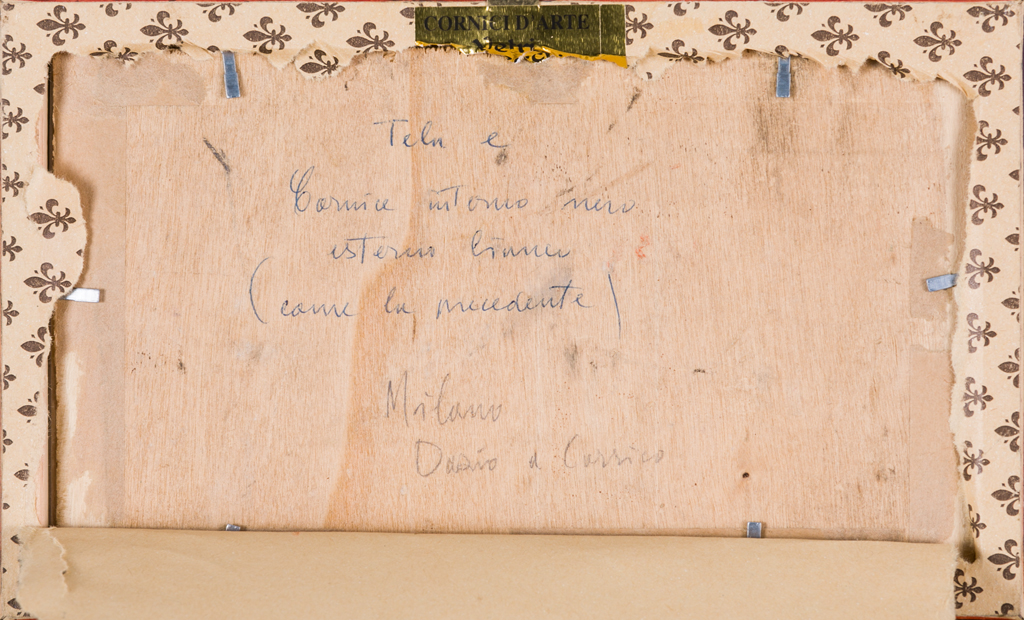 CORNICI D'ARTE
Tela e
Cornice intorno nero
esterno bianco
(come la precedente)
Milano
Dario a